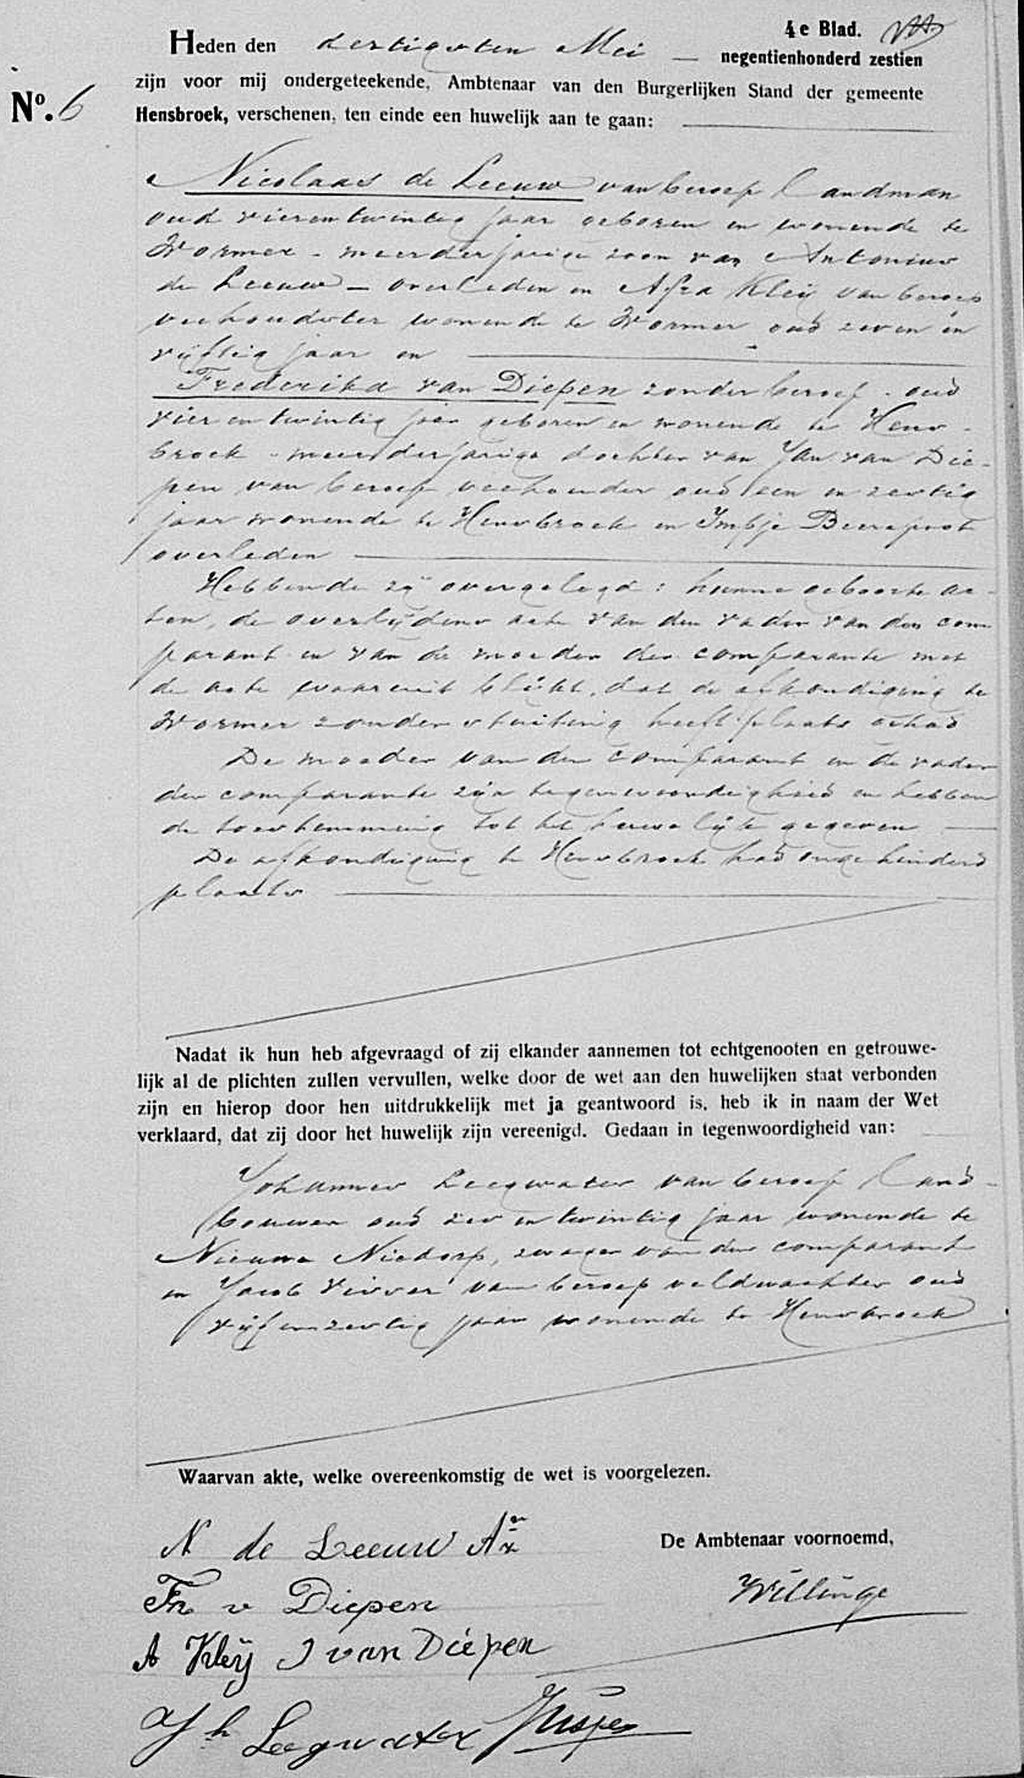 4e Blad.
Heden den dertigsten Mei negentienhonderd zestien
zijn voor mij ondergeteekende, Ambtenaar van den Burgerlijken Stand der gemeente
No. 6
Hensbroek, verschenen, ten einde een huwelijk aan te gaan:
Nicolaas de Leeuw van beroep landman
oud vierentwintig jaar geboren en wonende te
Wormer - meerderjarige zoon van Antonius
de Leeuw - overleden en Afra Kleij van beroep
veehoudster wonende te Wormer oud zeven en
vijftig jaar en
Frederika van Diepen zonder beroep oud
vier en twintig jaar geboren en wonende te Hens-
broek - meerderjarige dochter van Jan van Die-
pen van beroep veehouder oud een en zestig
jaar wonende te Hensbroek en Impje Beerepoot
overleden
Hebbende zij overgelegd: hunne geboorte ac-
ten, de overlijdens acte van den vader van den com
parant en van de moeder der comparante met
de acte waaruit blijkt, dat de afkondiging te
Wormer zonder stuiting heeft plaats gehad
De moeder van den comparant en de vader
der comparante zijn tegenwoordig en hebben
de toestemming tot het huwelijk gegeven
De afkondiging te Hensbroek had ongehinderd
plaats
Nadat ik hun heb afgevraagd of zij elkander aannemen tot echtgenooten en getrouwe-
lijk al de plichten zullen vervullen, welke door de wet aan den huwelijken staat verbonden
zijn en hierop door hen uitdrukkelijk met ja geantwoord is, heb ik in naam der Wet
verklaard, dat zij door het huwelijk zijn vereenigd. Gedaan in tegenwoordigheid van:
Johannes Leegwater van beroep land-
bouwer oud zes en twintig jaar wonende te
Nieuwe Niedorp, zwager van den comparant
en Jacob Visser van beroep veldwachter oud
vijf en zestig jaar wonende te Hensbroek
Waarvan akte, welke overeenkomstig de wet is voorgelezen.
N de Leeuw Azn
De Ambtenaar voornoemd,
Fr v Diepen
Willinge
A Kleij J van Diepen
Joh Leegwater